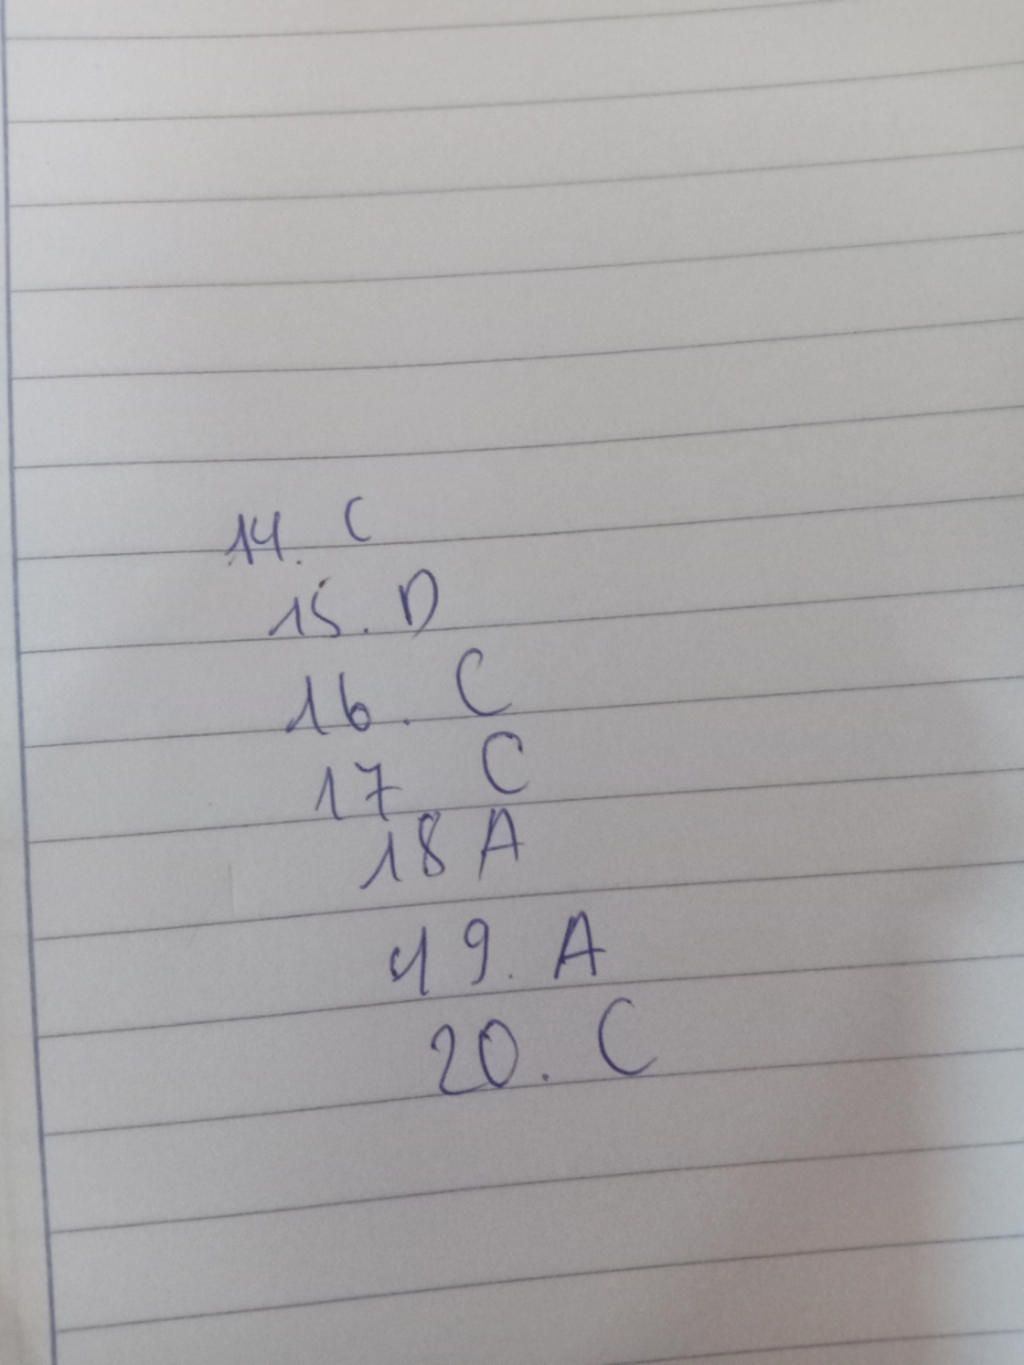 14. C
15. D
16. C
17 C
18 A
19. A
20. C